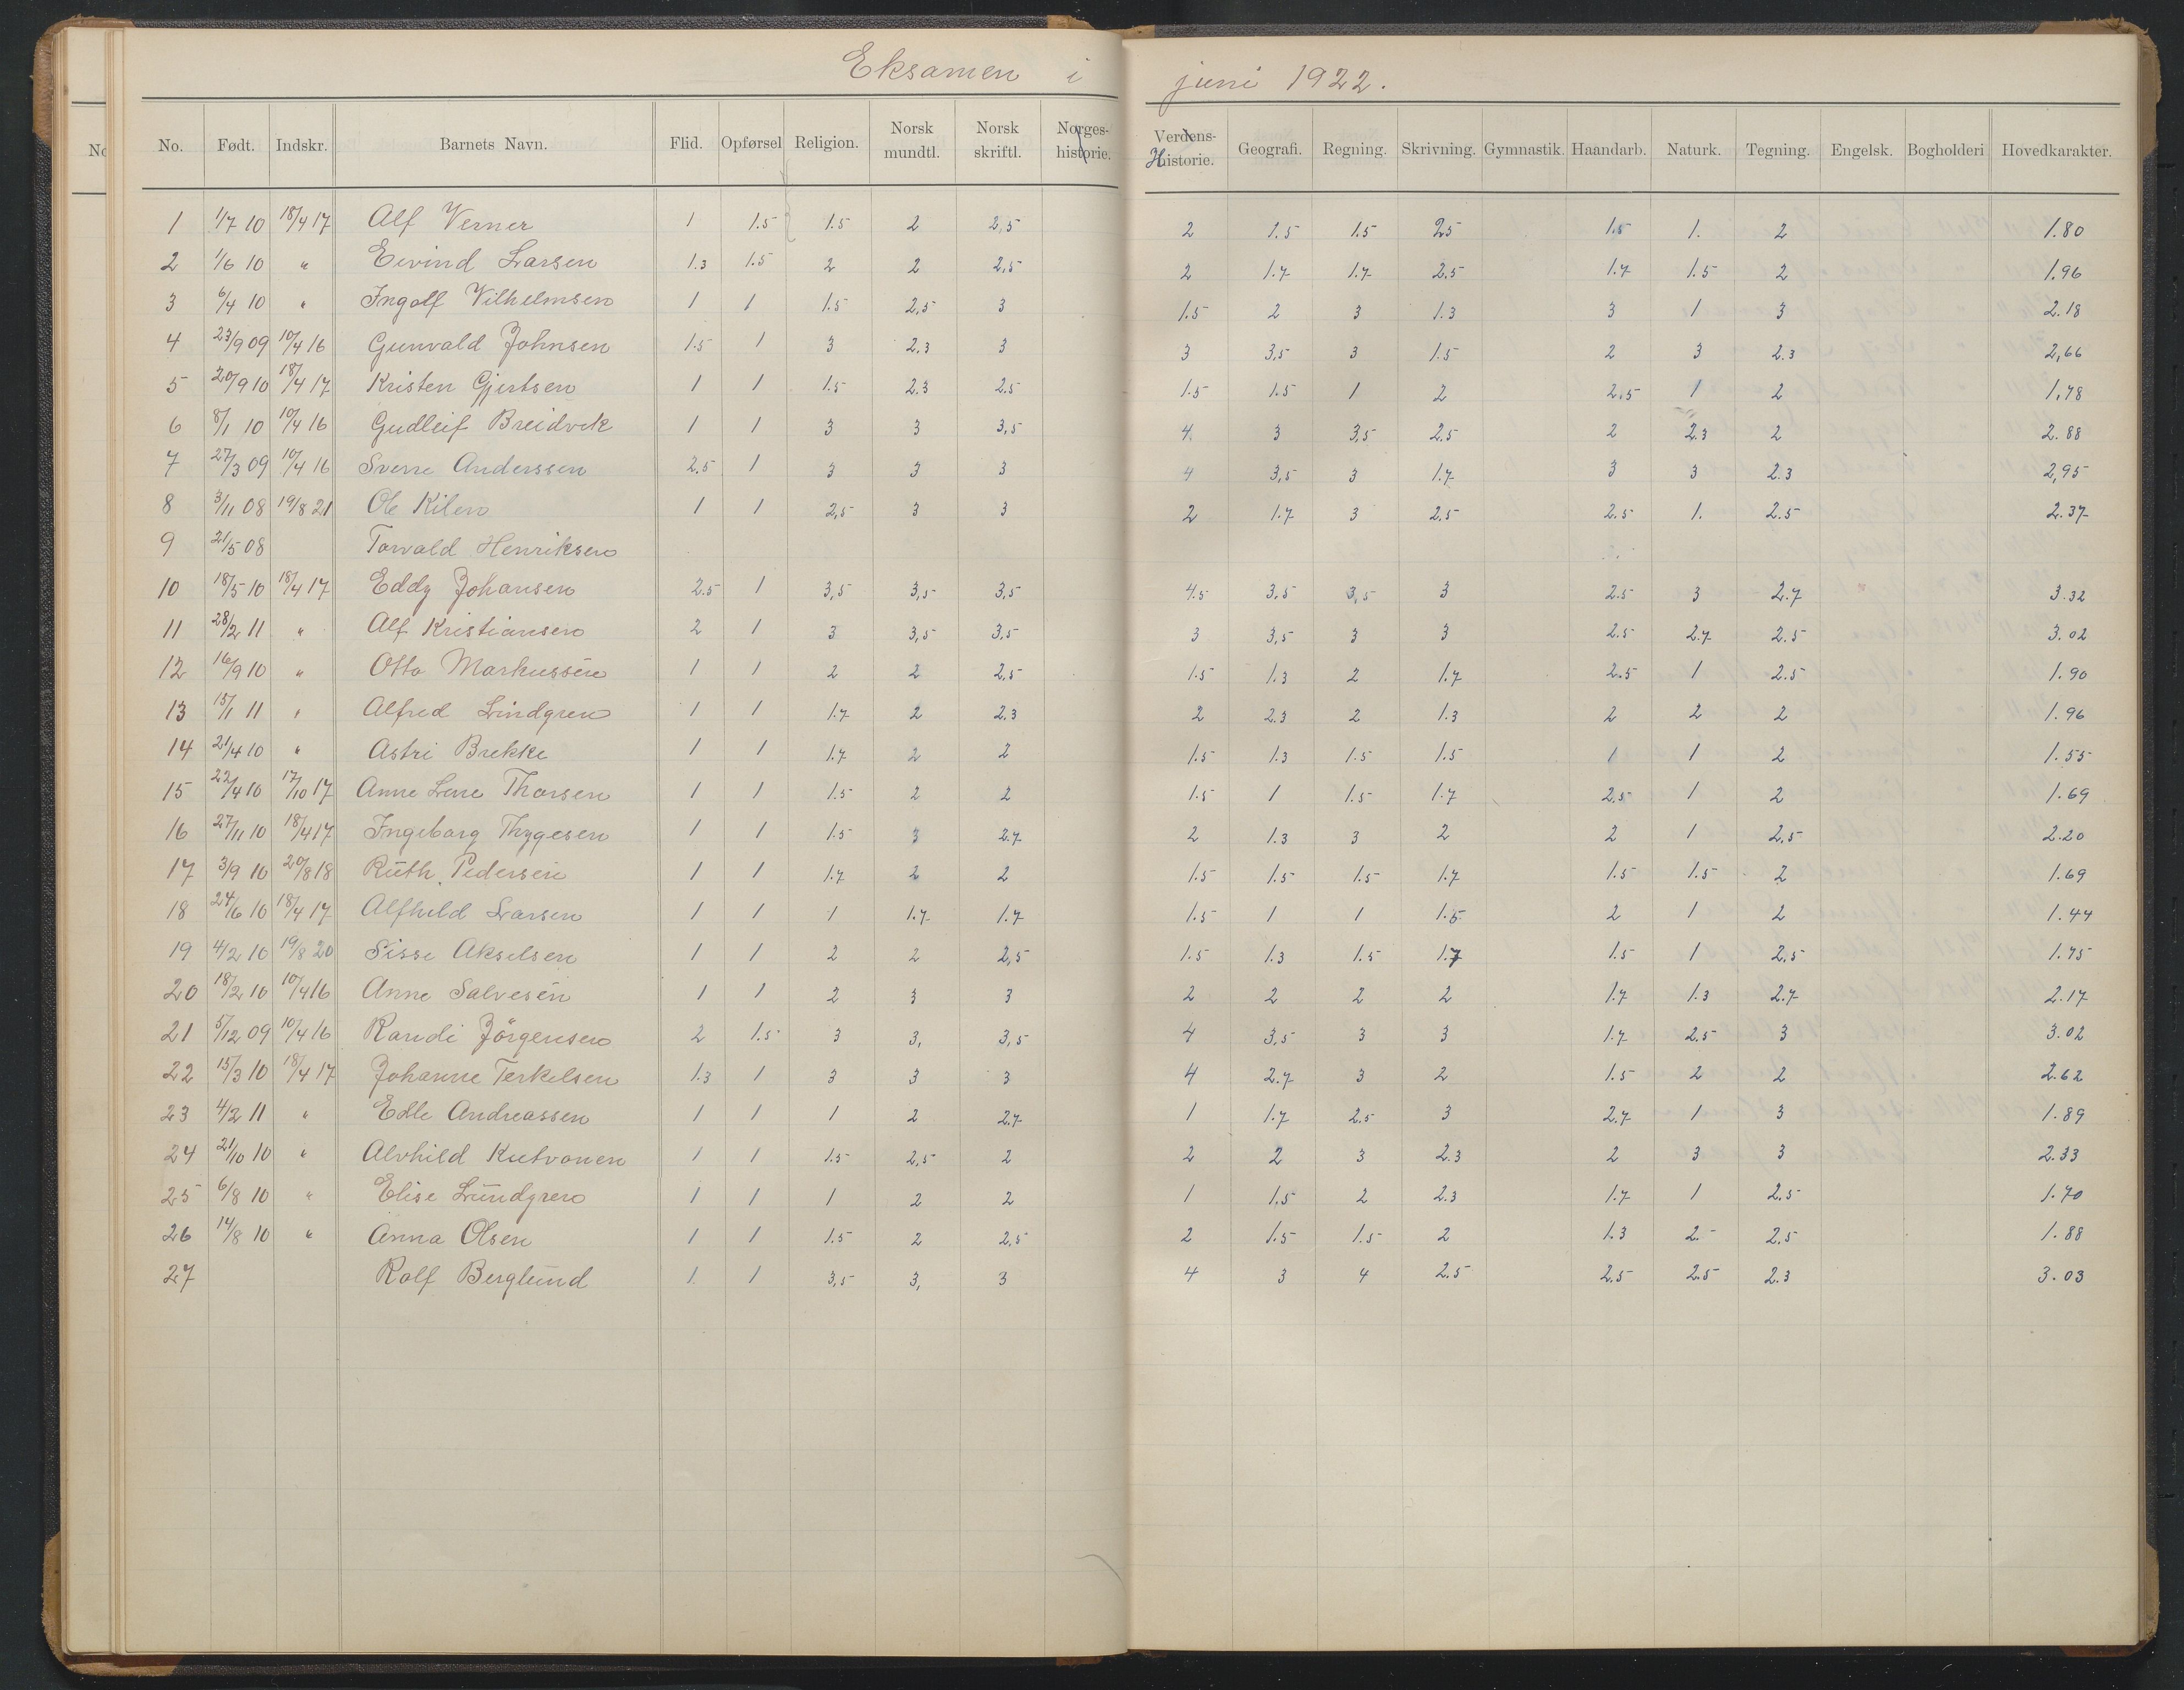 Eksamen i juni 1922.
No. Født. Indskr. Barnets Navn. Flid. Opførsel Religion. Norsk mundtl. Norsk skriftl. Norges-historie. Verdens-Historie. Geografi. Regning. Skrivning. Gymnastik. Haandarb. Naturk. Tegning. Engelsk. Bogholderi Hovedkarakter.
No
1 1/7 10 18/4 17 Alf Verner 1 1.5 1.5 2 2,5 2 1.5 1.5 25 1.5 1. 2 1.80
2 1/6 10 " Eivind Larsen 1.3 1.5 2 2 2,5 2 1.7 1.7 2.5 1.7 1.5 2 1.96
3 6/4 10 " Ingolf Vilhelmsen 1 1 1.5 2,5 3 1.5 2 3 1.3 3 1 3 2.18
4 23/9 09 10/4 16 Gunvald Johnsen 1.5 1 3 2.3 3 3 3,5 3 1.5 2 3 2.3 2,66
5 20/9 10 18/4 17 Kristen Gjertsen 1 1 1.5 2.3 2.5 1.5 1.5 1 2 2,5 1 2 1,78
6 8/1 10 10/4 16 Gudleif Breidvik 1 1 3 3 3,5 4. 3 3,5 2.5 2 2.3 2 2.88
7 27/3 09 10/4 16 Sverre Anderssen 2.5 1 3 3 3 4 3,5 3 1.7 3 3 2.3 2,95
8 3/11 08 19/8 21 Ole Kilen 1 1 2,5 3 3 2 1.7 3 2.5 2.5 1. 2.5 2.37
9 21/5 08 Torvald Henriksen
10 18/5 10 18/4 17 Eddy Johansen 2.5 1 3,5 3,5 3,5 4.5 3,5 3,5 3 2.5 3 2.7 3.32
11 28/2 11 " Alf Kristiansen 2 1 3 3,5 3,5 3 3,5 3 3 2.5 2.7 2.5 3.02
12 16/9 10 " Otto Markussen 1 1 2 2 2,5 1.5 1.3 2 1.7 2.5 1 2.5 1.90
13 15/1 11 " Alfred Lindgren 1 1 1.7 2 2.3 2 2.3 2 1.3 2 2 2 1.96
14 21/4 10 " Astri Brekke 1 1 1.7 2 2 1.5 1.3 1.5 1.5 1 1 2 1.55
15 22/4 10 17/10 17 Anne Lene Thorsen 1 1 1.5 2 2 1.5 1 1.5 1.7 2.5 1 2 1.69
16 27/11 10 18/4 17 Ingeborg Thygesen 1 1 1.5 3 2.7 2 1.3 3 2 2 1 2,5 2.20
17 3/9 10 20/8 18 Ruth Pedersen 1 1 1.7 2 2 1.5 1.5 1.5 1.7 1.5 1.5 2 1.69
18 24/6 10 18/4 17 Alfhild Larsen 1 1 1 1.7 1.7 1.5 1 1 1.5 2 1 2 1.44
19 4/2 10 19/8 20 Sisse Akselsen 1 1 2 2 2,5 1.5 1.3 1.5 1.7 1.5 1 2,5 1.75
20 18/2 10 10/4 16 Anne Salvesen 1 1 2 3 3 2 2 2 2 1.7 1.3 2.7 2.17
21 5/12 09 10/4 16 Randi Jörgensen 2 1.5 3 3, 3,5 4 3,5 3 3 1.7 2.5 3 3.02
22 15/3 10 18/4 17 Johanne Terkelsen 1.3 1 3 3 3 4 2.7 3 2 1.5 2 2 2.62
23 4/2 11 " Edle Andreassen 1 1 1 2 2.7 1 1.7 2.5 3 2.7 1 3 1.89
24 21/10 10 " Alvhild Kutvonen 1 1 1.5 2,5 2 2 2 3 2.3 2 3 3 2.33
25 6/8 10 " Elise Lundgren 1 1 1 2 2 1 1,5 2 2.3 1.7 1 2.5 1.70
26 14/8 10 " Anna Olsen 1 1 1.5 2 2,5 2 1.5 1.5 2 1.3 2.- 2,5 1.88
27 Rolf Berglund 1. 1 3,5 3, 3 4 3 4 2.5 2,5 2.5 2.3 3.03